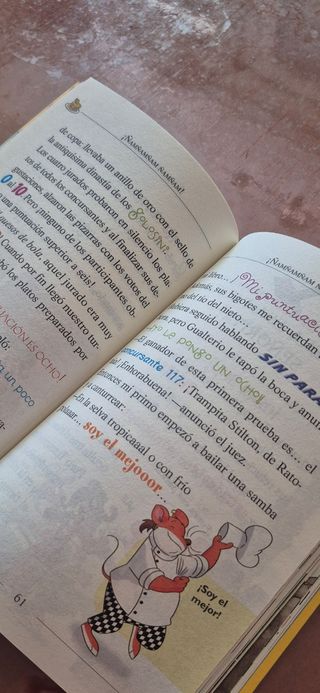 ¡ÑAMÑAMÑAM ÑAMÑAM!
de copa: llevaba un anillo de oro con el sello de
la antiquísima dinastía de los Golosini.
Los cuatro jurados probaron en silencio los pla-
tos de todos los concursantes y, al finalizar sus de-
gustaciones, alzaron las pizarras con los votos de
0 al 10. Pero ninguno de los participantes ob-
una puntuación superior a seis!
huesos de bola, aquel jurado era muy
Cuando por fin llegó nuestro tur-
bó los platos preparados por
UACIÓN ES OCHO!
ló:
a, un poco
61
¡ÑAMÑAMÑAM Ñ
¡Mi puntuac
ero...
emás, sus bigotes me recuerdan
del tío del nieto...
biera seguido hablando SIN PARA
ra, pero Gualterio le tapó la boca y anun
LE PONGO UN OCHO!
ganador de esta primera prueba es... el
concursante 117: ¡Trampita Stilton, de Rato-
¡Enhorabuena! —anunció el juez.
ntonces mi primo empezó a bailar una samba
a canturrear:
—En la selva tropicaaal o con frío
soy el mejooor...
¡Soy el
mejor!